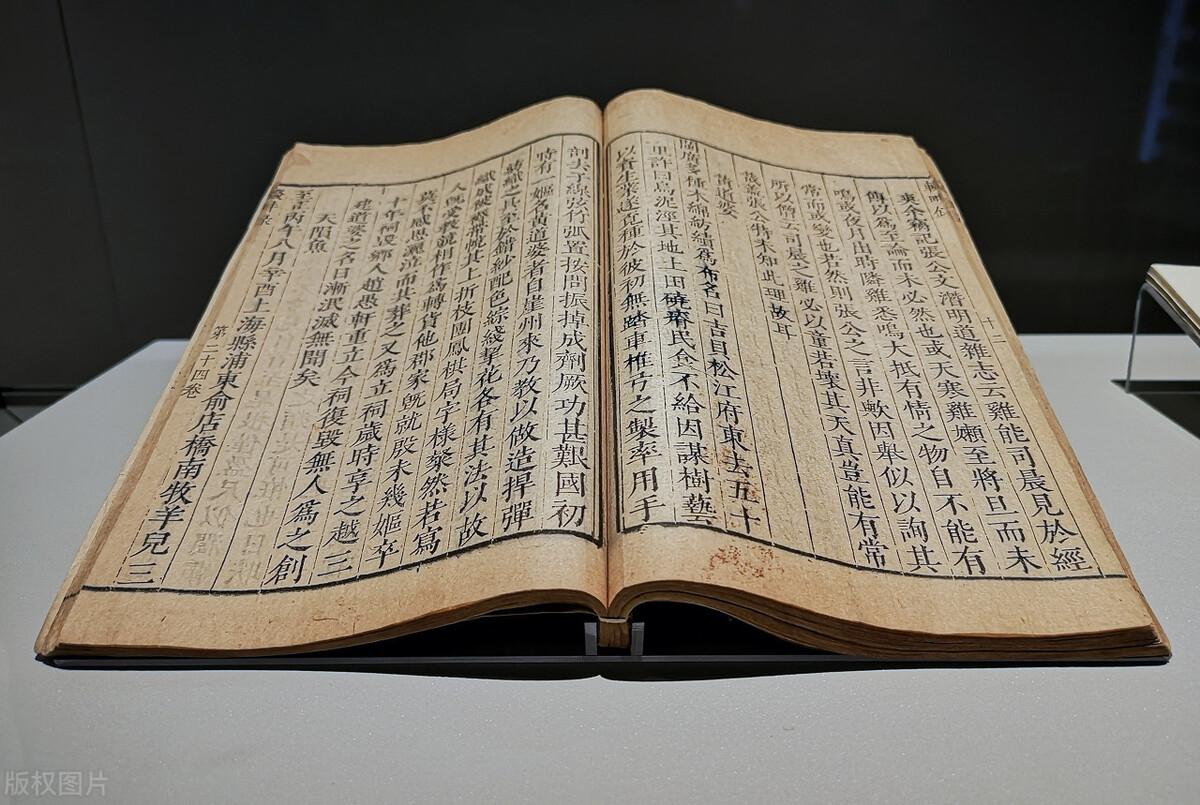 十二
東余稿記張公文潛明道雜志云雞能司晨見於經
傳以爲至論而未必然也或天寒雞嬾至將旦而未
鳴或夜月出時隣雞悉鳴大抵有情之物自不能有
常而或變也若然則張公之言非歟因舉似以詢其
所以僧云司晨之雞必以童若壞其天真豈能有常
哉蓋張公特未知此理故耳
黃道婆
閩廣多種木綿紡績爲布名曰吉貝松江府東去五十
里許曰烏泥涇其地土田磽瘠民食不給因謀樹藝
以資生業遂覓種於彼初無踏車椎弓之製率用手
剖去子線弦竹弧置按間振掉成劑厥功甚艱國初
時有一嫗名黃道婆者自崖州來乃教以做造捍彈
紡織之具至於錯紗配色綜綫挈花各有其法以故
織成被褥帶帨其上折枝團鳳棋局字樣粲然若寫
人既受教競相作爲轉貨他郡家既就殷未幾嫗卒
莫不感恩灑泣而共葬之又爲立祠歲時享之越三
十年祠毀鄉人趙愚軒重立今祠復毀無人爲之創
建道婆之名日漸泯滅無聞矣
天隕魚
至正丙午八月辛酉上海縣浦東俞店橋南牧羊兒三
第二十四卷
版权图片